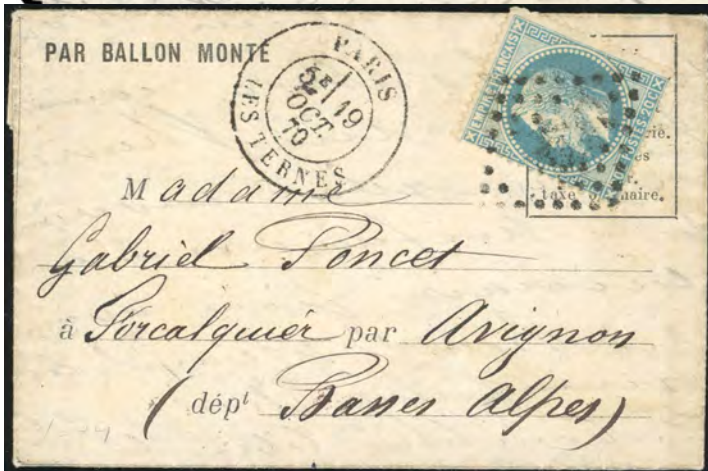 PAR BALLON MONTÉ
PARIS
5E 19
OCT.
70
LES TERNES
EMPIRE FRANÇAIS
20C POSTES 20C
rie.
es
r.
taxe naire.
Madame
Gabriel Poncet
à Forcalquier par Avignon
(dépt Basses Alpes)